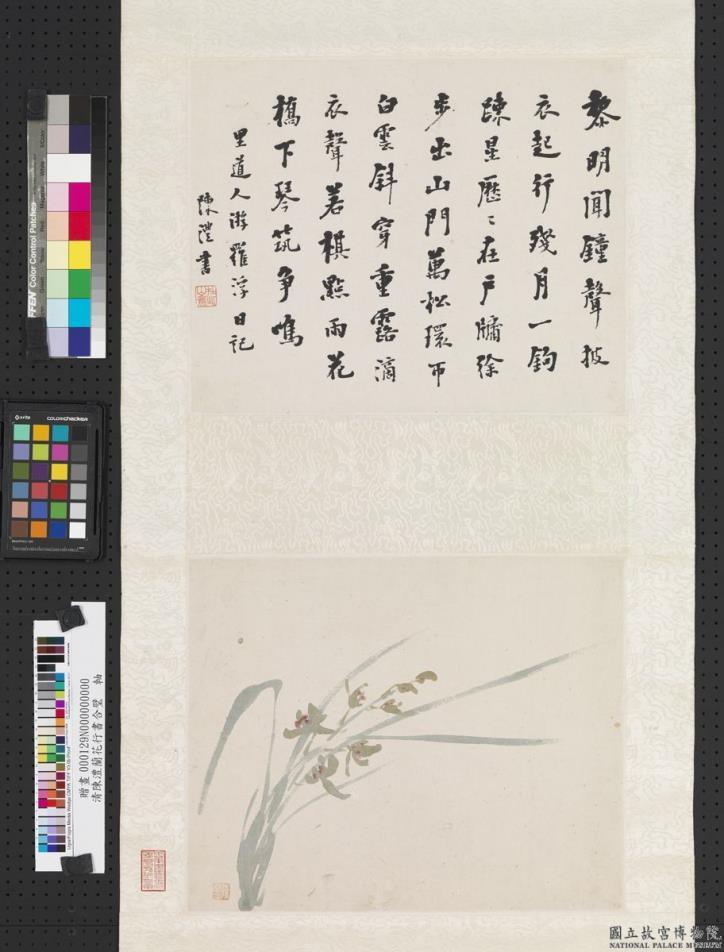 黎明聞鐘聲披
衣起行殘月一鉤
疎星歷〻在戶牖徐
步出山門萬松環帀
白雲斜穿重露滴
衣聲若棋點雨花
橋下琴筑爭鳴
里道人游羅浮日記
陳澧書
Color Control Patches
x-rite
colorchecker
贈畫 000129N000000000
清陳澧蘭花行書合璧　軸
國立故宮博物院
NATIONAL PALACE MUSEUM